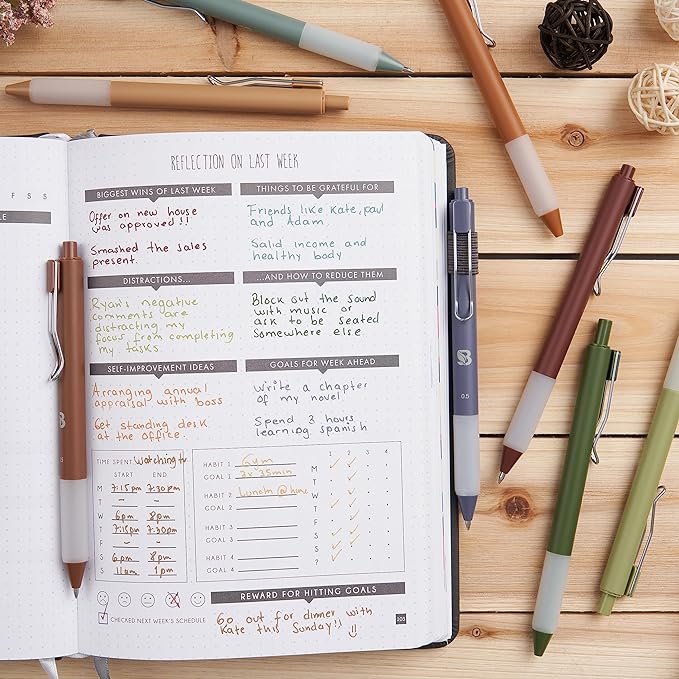 F S S
REFLECTION ON LAST WEEK
BIGGEST WINS OF LAST WEEK
Offer on new house
was approved!!
Smashed the sales
present.
THINGS TO BE GRATEFUL FOR
Friends like Kate, paul
and Adam
Salid income and
healthy body
DISTRACTIONS...
Ryan's negative
comments are
distracting my
focus from completing
my tasks.
...AND HOW TO REDUCE THEM
Block out the sound
with music or
ask to be seated
Somewhere else
SELF-IMPROVEMENT IDEAS
Arranging annual
appraisal with boss
Get standing desk
at the office.
GOALS FOR WEEK AHEAD
Write a chapter
of my novel
Spend 3 hours
learning spanish
TIME SPENT: Watching tv
START END
M 7:15pm 7:30pm
T – –
W 6pm 8pm
T 7:15pm 7:30pm
F – –
S 6pm 8pm
S 11am 1pm
HABIT 1 Gym
GOAL 1 2x 35min
HABIT 2 Lunch @ home
GOAL 2
HABIT 3
GOAL 3
HABIT 4
GOAL 4
1 2 3 4
M
T
W
T
F
S
S
?
REWARD FOR HITTING GOALS
Go out for dinner with
Kate this Sunday!!
CHECKED NEXT WEEK'S SCHEDULE
105
SB
0.5
SB